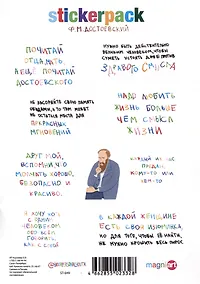 stickerpack
Ф.М.ДОСТОЕВСКИЙ
ПОЧИТАЙ
ОТДЫХАТЬ,
А ЕЩЁ, ПОЧИТАЙ
ДОСТОЕВСКОГО
НУЖНО БЫТЬ ДЕЙСТВИТЕЛЬНО
ВЕЛИКИМ ЧЕЛОВЕКОМ, ЧТОБЫ
СУМЕТЬ УСТОЯТЬ ДАЖЕ ПРОТИВ
ЗДРАВОГО СМЫСЛА
НЕ ЗАСОРЯЙТЕ СВОЮ ПАМЯТЬ
ОБИДАМИ, А ТО ТАМ МОЖЕТ
НЕ ОСТАТЬСЯ МЕСТА ДЛЯ
ПРЕКРАСНЫХ
МГНОВЕНИЙ
НАДО ЛЮБИТЬ
ЖИЗНЬ БОЛЬШЕ
ЧЕМ СМЫСЛ
ЖИЗНИ
ДРУГ МОЙ,
ВСПОМНИ, ЧТО
МОЛЧАТЬ ХОРОШО,
БЕЗОПАСНО И
КРАСИВО.
Я ХОЧУ ХОТЬ
С ОДНИМ
ЧЕЛОВЕКОМ
ОБО ВСЁМ
ГОВОРИТЬ,
КАК С СОБОЙ
В КАЖДОЙ ЖЕНЩИНЕ
ЕСТЬ СВОЯ ИЗЮМИНКА,
НО ДЛЯ ТОГО, ЧТОБЫ ЕЁ НАЙТИ,
НЕ НУЖНО КРОШИТЬ ВЕСЬ ПИРОГ.
4 662855 023328
magniart